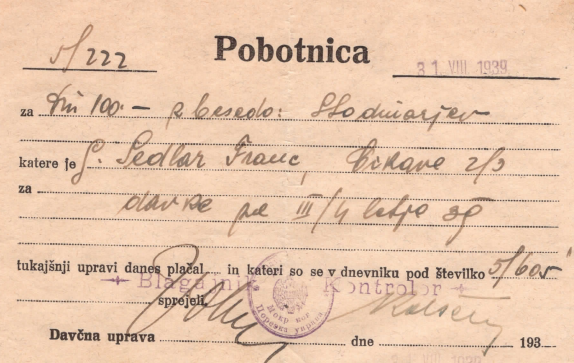 5/222 Pobotnica 31. VIII. 1939.
za Din 100.— z besedo: Stodinarjev
katere je g. Sedlar Franc, Cirkove 2/3
za davke za III/4 letje 39
tukajšnji upravi danes plačal in kateri so se v dnevniku pod številko 5/605
Blagajnik Kontrolor
sprejeli.
Davčna uprava dne 193